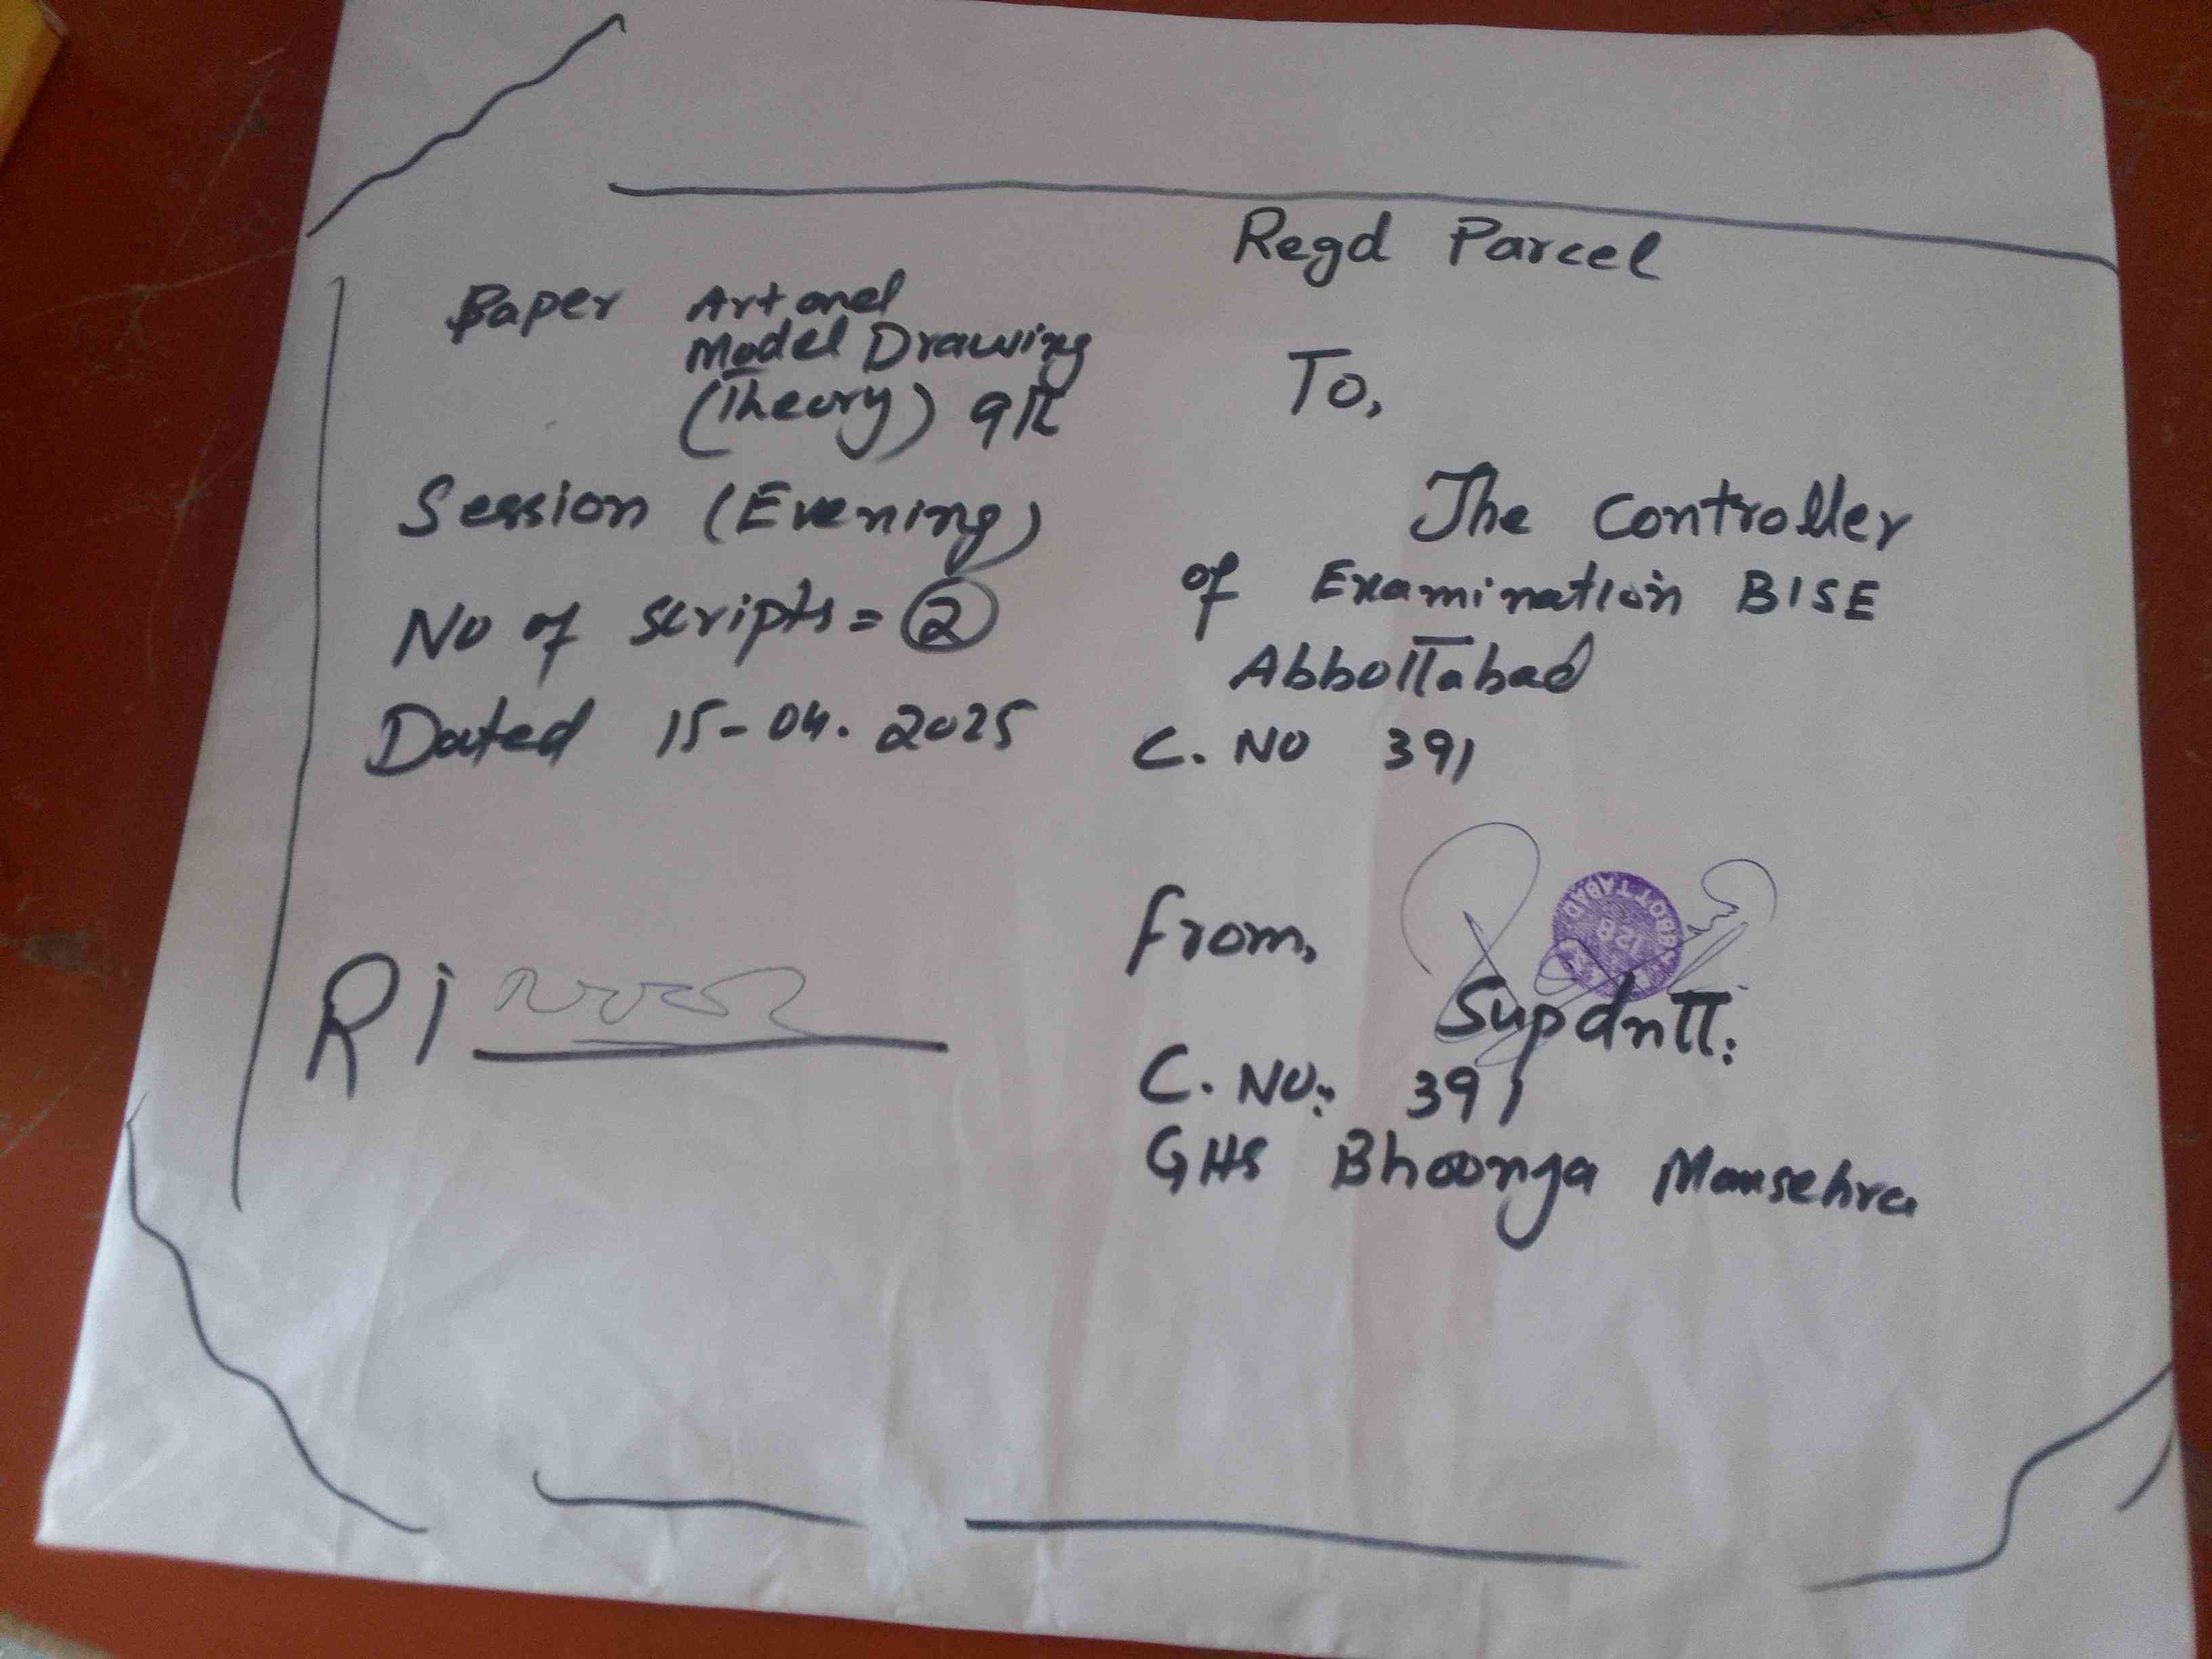 Regd Parcel
Paper Art and
Model Drawing
(Theory) 9th
Session (Evening)
No of scripts = 2
Dated 15-04.2025
To,
The Controller
of Examination BISE
Abbottabad
C. NO 391
from,
ABBOTTABAD
128
Supdntt:
C. NO: 391
GHS Bhoonga Mansehra
Ri